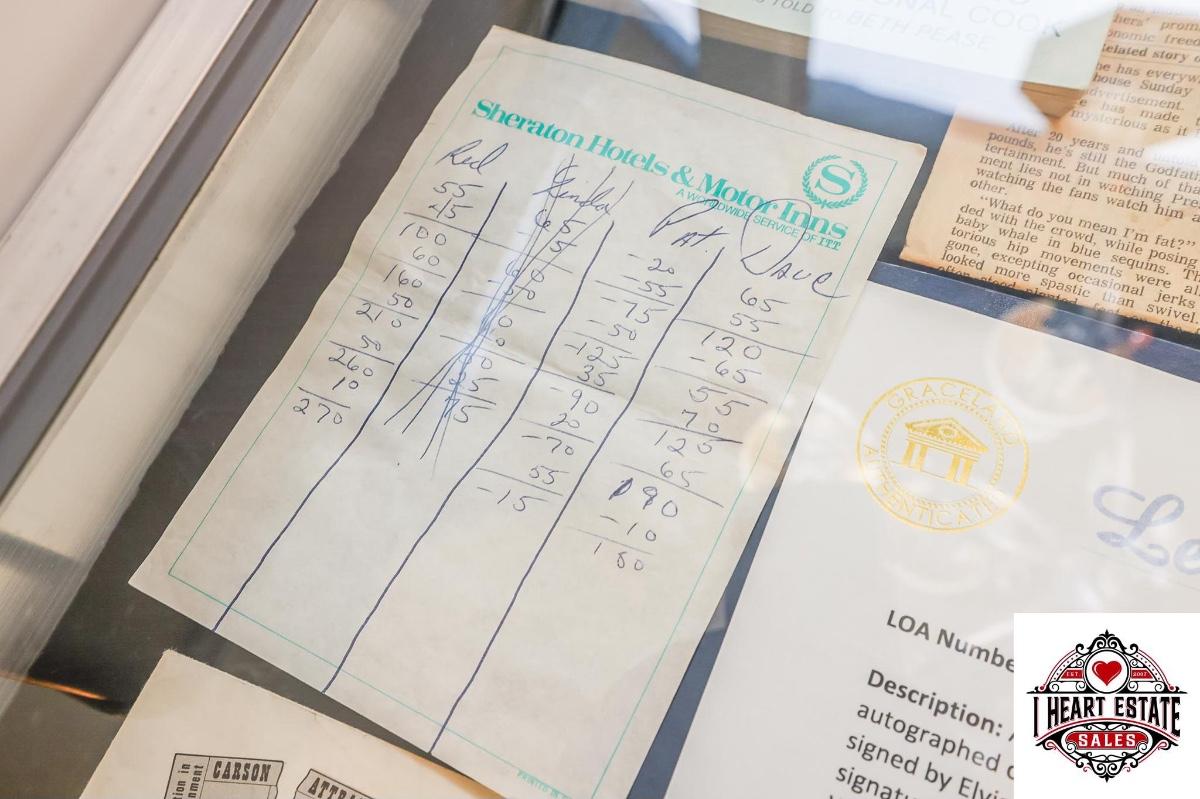 Sheraton Hotels & Motor Inns
A WORLDWIDE SERVICE OF ITT
S
Red
55
45
100
60
160
50
210
50
260
10
270
Linda
65
75
Pat
-20
-55
-75
-50
-125
35
-90
20
-70
55
-15
Dave
65
55
120
-65
55
70
125
65
190
-10
180
PRINTED IN
ONAL COOK
TOLD TO BETH PEASE
hers' prom
onomic freed
elated story o
he has everyw
house Sunday
dvertisement.
e has made t
mysterious as it
After 20 years and
pounds, he's still the Godfath
tertainment. But much of tha
ment lies not in watching Pres
watching the fans watch him a
other.
"What do you mean I'm fat?"
ded with the crowd, while posing
baby whale in blue sequins. Th
torious hip movements were al
gone, excepting occasional jerks
looked more spastic than swivel.
GRACELAND
AUTHENTICATED
Le
LOA Numbe
Description:
autographed
signed by Elvi
signatu
tion in
nment
CARSON
ATTRA
EST. 2007
I HEART ESTATE
SALES